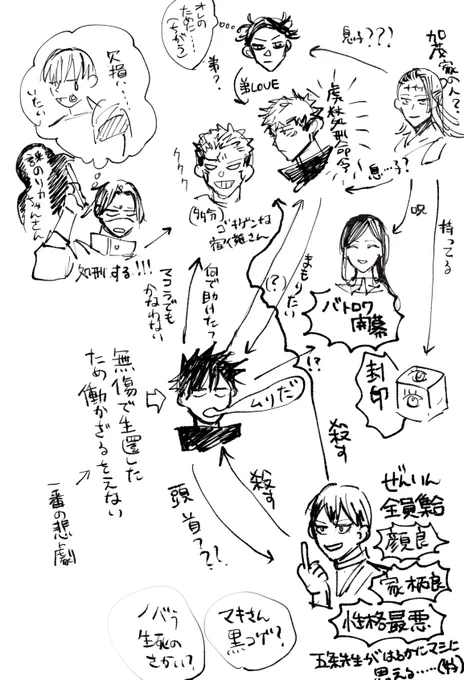 オレの
ためだ……
(ちがう)
弟？
弟LOVE
息子???
加茂家の人？
欠損い…
いたい
謎のリカちゃんさん
処刑する!!!
ククク
(多分)
ゴキゲンな
宿儺さん
虎杖処刑命令
息…子？
呪
持ってる
マコラでも
かなわない
何で助けたっ
(?)
まもりたい
バトロワ
開幕
封印
!?
ムリだ
無傷で生還した
ため働かざるをえない
一番の悲劇
頭首???
殺す
殺す
ぜんいん
全員集合
顔良
家柄良
性格最悪
五条先生がはるかにマシに
思える……
ノバラ
生死の
さかい？
マキさん
黒コゲ？